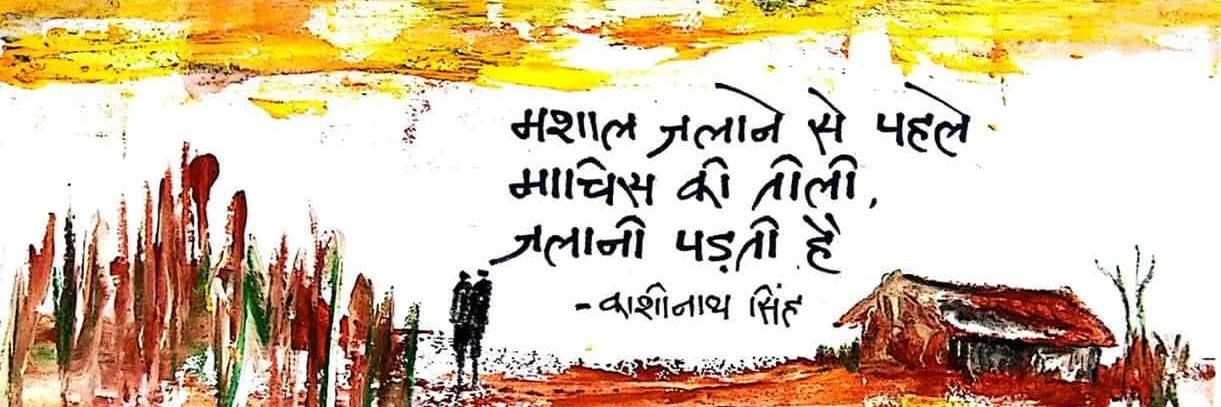 मशाल जलाने से पहले
माचिस की तीली,
जलानी पड़ती है
-काशीनाथ सिंह